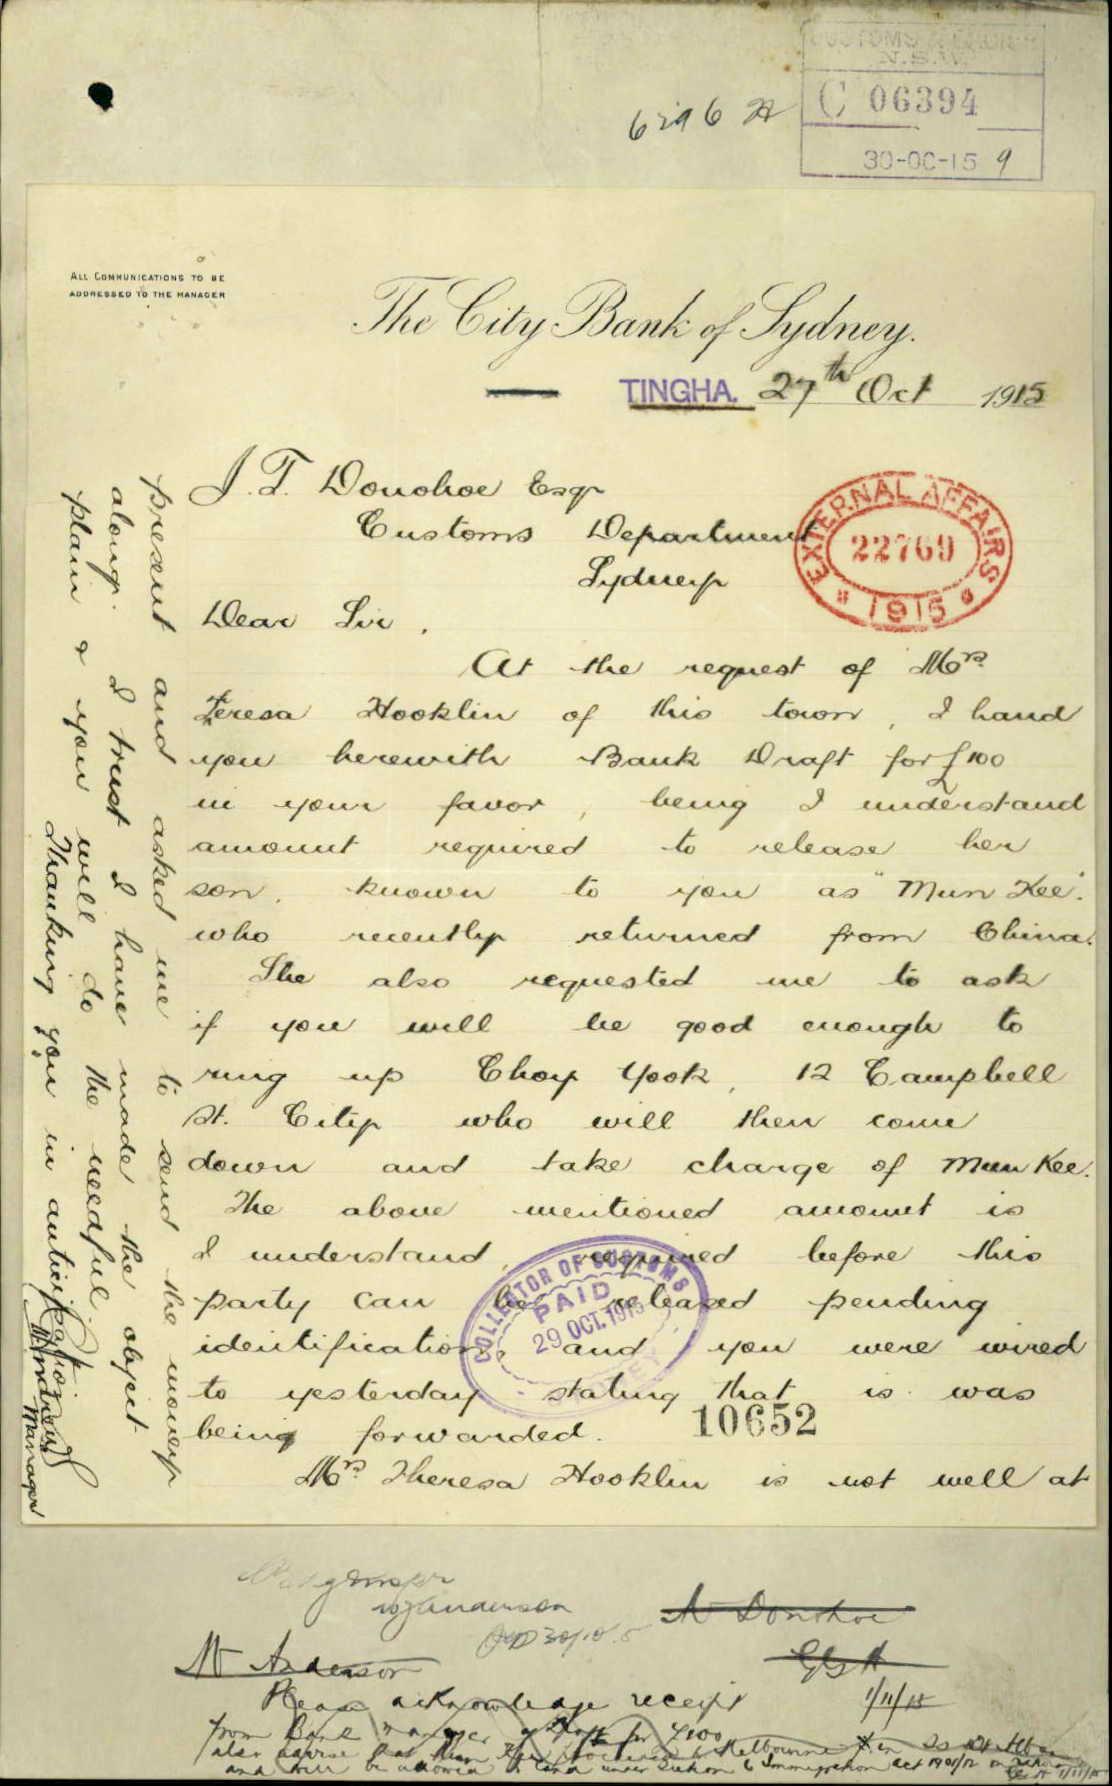 CUSTOMS
N.S.W.
C 06394
30-OC-15 9
6296
ALL COMMUNICATIONS TO BE
ADDRESSED TO THE MANAGER
The City Bank of Sydney.
TINGHA. 27th Oct 1915
J. T. Donohoe Esqr
Customs Department
Sydney
EXTERNAL AFFAIRS
22769
1915
Dear Sir,
At the request of Mrs
Teresa Hooklin of this town, I hand
you herewith Bank Draft for £100
in your favor, being I understand
amount required to release her
son, known to you as "Mun Kee".
who recently returned from China.
She also requested me to ask
if you will be good enough to
ring up Choy Yook, 12 Campbell
St. City who will then come
down and take charge of Mun Kee.
The above mentioned amount is
I understand, required before this
party can be released pending
identification, and you were wired
to yesterday stating that is was
being forwarded.
COLLECTOR OF CUSTOMS
PAID
29 OCT. 1915
10652
Mrs Theresa Hooklin is not well at
present and asked me to send the money
along. I trust I have made the object
plain & you will do the needful.
Thanking you in anticipation
Manager
Anderson
30/10.5
Mr Donohoe
Mr Anderson
1/11/15
Please acknowledge receipt
from Bank Manager of draft for £100
also advise that Mun Kee proceeded to Melbourne
and will be allowed to land under Section 6 Immigration Act 1901/12
1/11/15